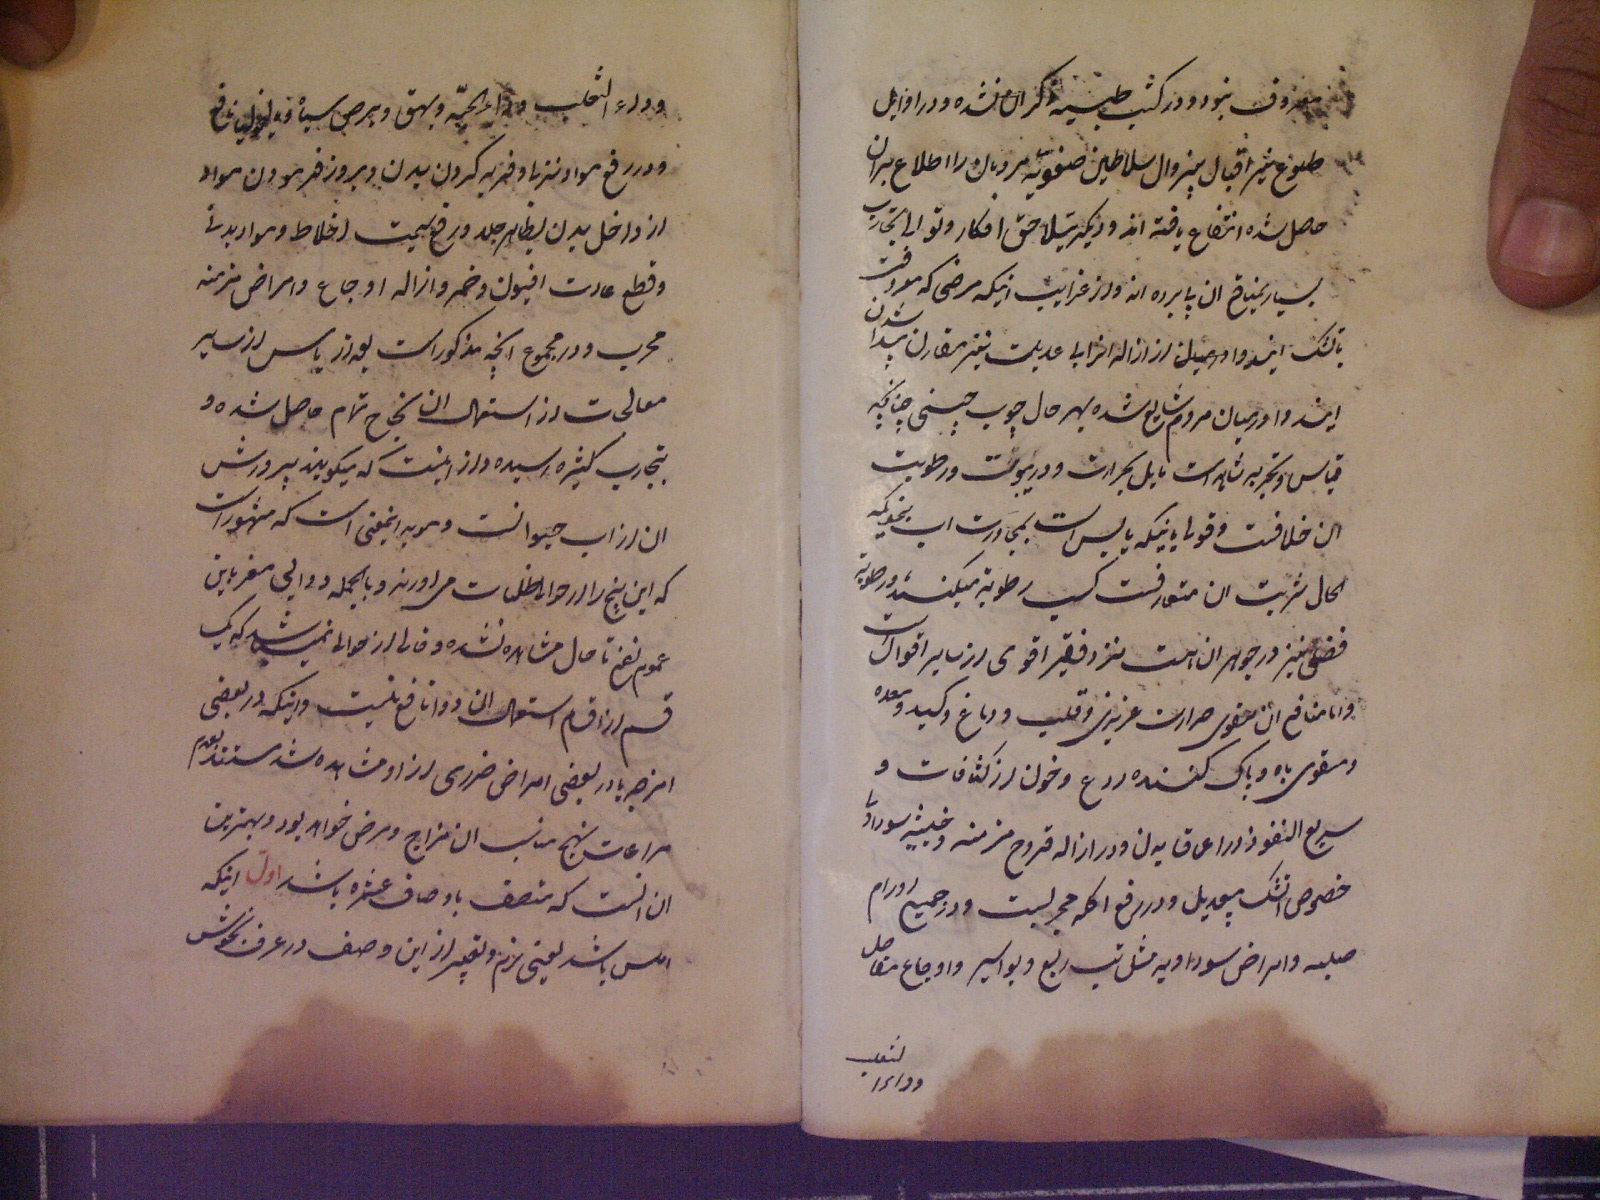 معروف نبود و در کتب طبیه ذکر آن نشده و در اوایل
طلوع نیر اقبال بیزوال سلاطین صفویه مردمان را اطلاع بران
حاصل شده انتفاع یافته اند و دیگر بتلاحق افکار و توالی تجارب
بسیار بمنافع ان پا برده اند و از غرایب اینکه مرضی که معروفست
باتشک ایندوا در ازاله آن بی عدیلست نیز مقارن پیدا شدن
ایندوا در میان مردم شایع شده بهر حال چوب چینی چنانچه
قیاس و تجربه شاهد است مایل بحرارت و در یبوست و رطوبت
ان خلافست و قول باینکه یابس است بمجاورت اب بنحویکه
الحال شربت ان متعارفست کسب رطوبة میکند و رطوبة
فضلی نیز در جوهر ان هست نزد فقیر اقوی از سایر اقوالست
و اما منافع ان مقوی حرارت غریزی و قلب و دماغ و کبد و معده
و مقوی باه و پاک کننده روح و خون از کثافات و
سریع النفوذ در اعماق بدن و در ازاله قروح مزمنه و خبیثه سوداوی
خصوص اتشک بیعدیل و در رفع اکله مجربست و در جمیع اورام
صلبه و امراض سوداویه مثل تب ربع و بواسیر و اوجاع مفاصل
و داء الثعلب
و داء الثعلب و داء الحیه و بهق و برص سیاه و مالیخولیا نافع
و در رفع مواد نزله و فربه کردن بدن و بروز فرمودن مواد
از داخل بدن بظاهر جلد و رفع سمیت اخلاط و مواد بدنی
و قطع عادت افیون و خمر و ازاله اوجاع و امراض مزمنه
مجرب و در مجموع انچه مذکور است بعد از یاس از سایر
معالجات از استعمال ان نجاح تمام حاصل شده و
بتجارب کثیره رسیده و از اینست که میگویند پرورش
ان از اب حیوانست و موید اینمعنی است که مشهور است
که این بیخ را از حوالی ظلمات می اورند و بالجمله دوائی مفرد باین
عموم نفع تا حال مشاهده نشده و خالی از حوالی نمیباشد که یک
قسم از اقسام استعمال ان دوا نافع نیست و اینکه در بعضی
امزجه یا در بعضی امراض ضرری از او مشاهده شد مستند بعدم
مراعات نهج مناسب ان مزاج و مرض خواهد بود و بهترین
ان انست که متصف باوصاف عشره باشد اول اینکه
املس باشد یعنی نرم و تعبیر از این وصف در عرف بخوش